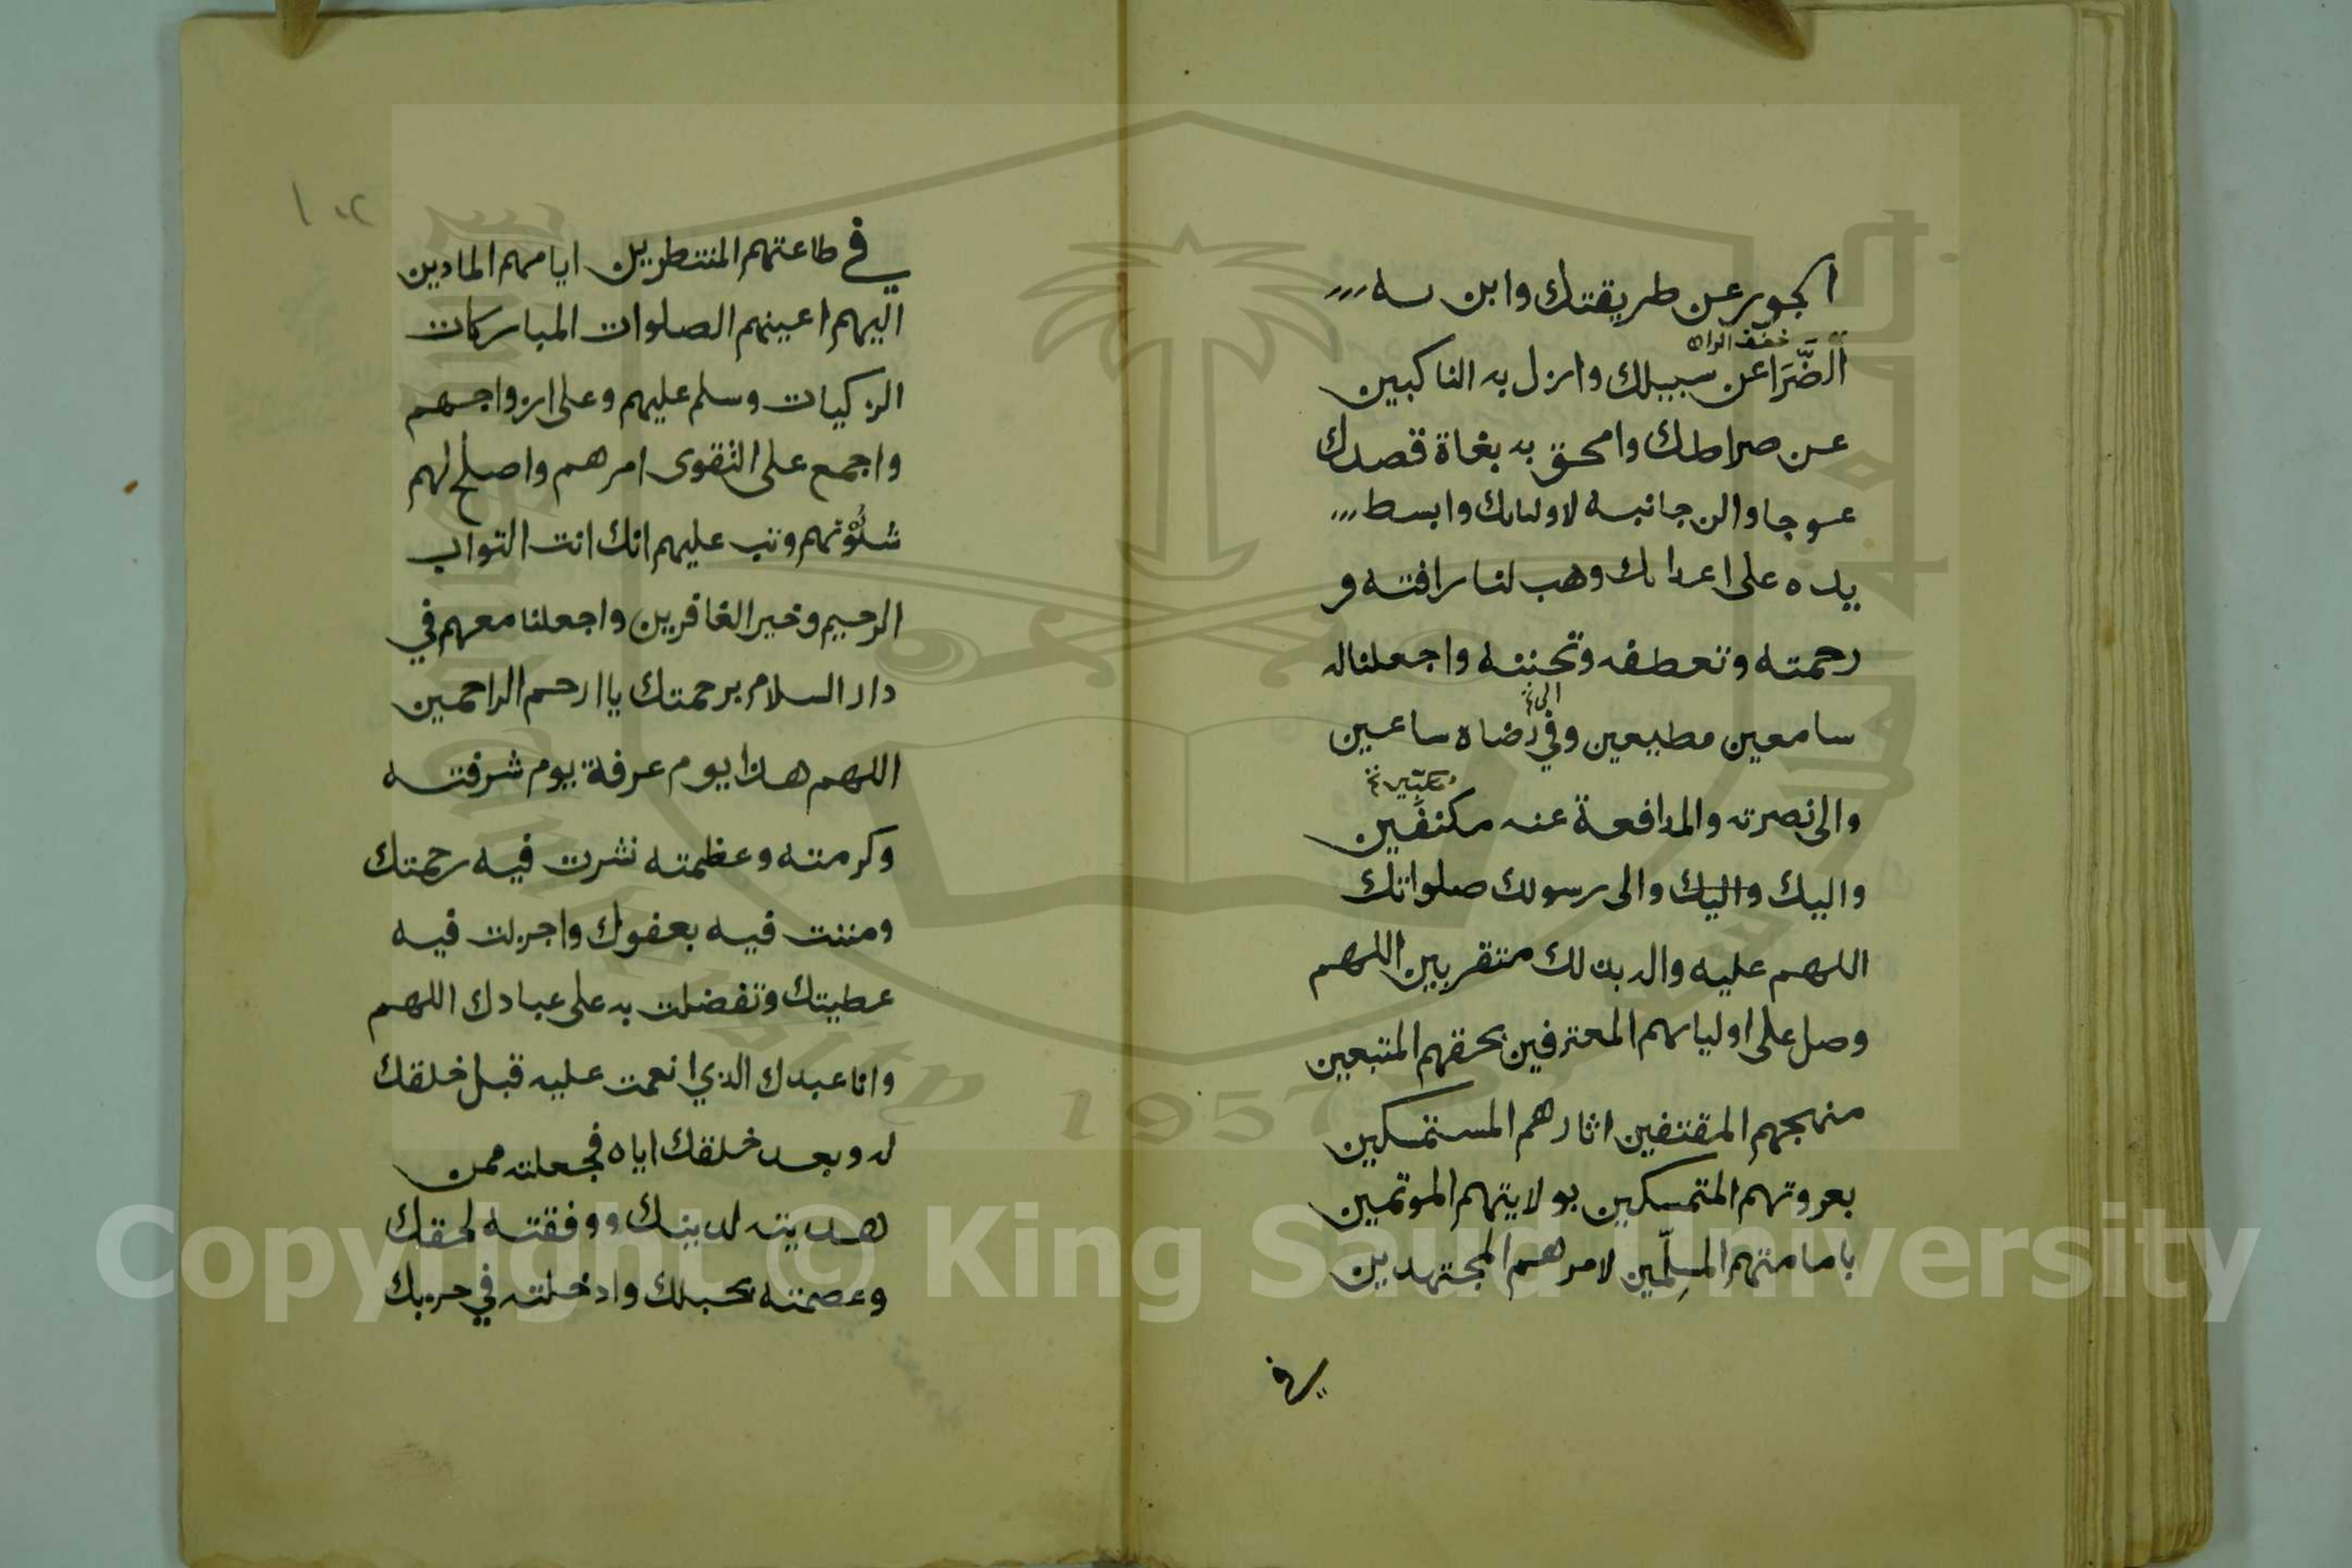 الجور عن طريقتك وابن به
خفف الراء
الضَّرَا عن سبيلك وازل به الناكبين
عن صراطك وامحق به بغاة قصدك
عوجا والن جانبه لاوليايك وابسط
يده على اعدايك وهب لنا رافته و
رحمته وتعطفه وتحننه واجعلنا له
الى
سامعين مطيعين وفي رضاه ساعين
والى نصرته والمدافعة عنه مكنفين
واليك واليك والى رسولك صلواتك
اللهم عليه واله بذلك متقربين اللهم
وصل على اوليايهم المعترفين بحقهم المتبعين
منهجهم المقتفين اثارهم المستمسكين
بعروتهم المتمسكين بولايتهم الموتمين
بامامتهم المسلِّمين لامرهم المجتهدين
في
١٠٢
في طاعتهم المنتظرين ايامهم المادين
اليهم اعينهم الصلوات المباركات
الزكيات وسلم عليهم وعلى ارواحهم
واجمع على التقوى امرهم واصلح لهم
شئونهم وتب عليهم انك انت التواب
الرحيم وخير الغافرين واجعلنا معهم في
دار السلام برحمتك يا ارحم الراحمين
اللهم هذا يوم عرفة يوم شرفته
وكرمته وعظمته نشرت فيه رحمتك
ومننت فيه بعفوك واجزلت فيه
عطيتك وتفضلت به على عبادك اللهم
وانا عبدك الذي انعمت عليه قبل خلقك
له وبعد خلقك اياه فجعلته ممن
هديته لدينك ووفقته لحقك
وعصمته بحبلك وادخلته في حزبك
Copyright © King Saud University
1957